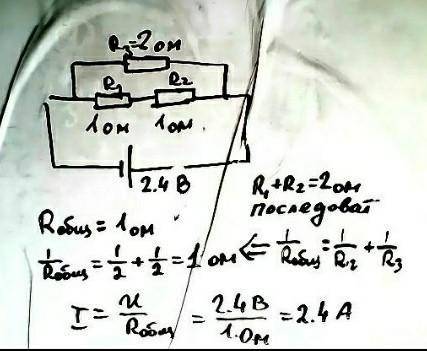 R₃=2 ом
R₁ R₂
1 ом 1 ом
2.4 В
R₁+R₂=2 ом
последоват
Rобщ = 1 ом
1/Rобщ = 1/2 + 1/2 = 1 ом ⇐ 1/Rобщ = 1/R₁₂ + 1/R₃
I = u/Rобщ = 2.4 В/1 Ом = 2.4 А